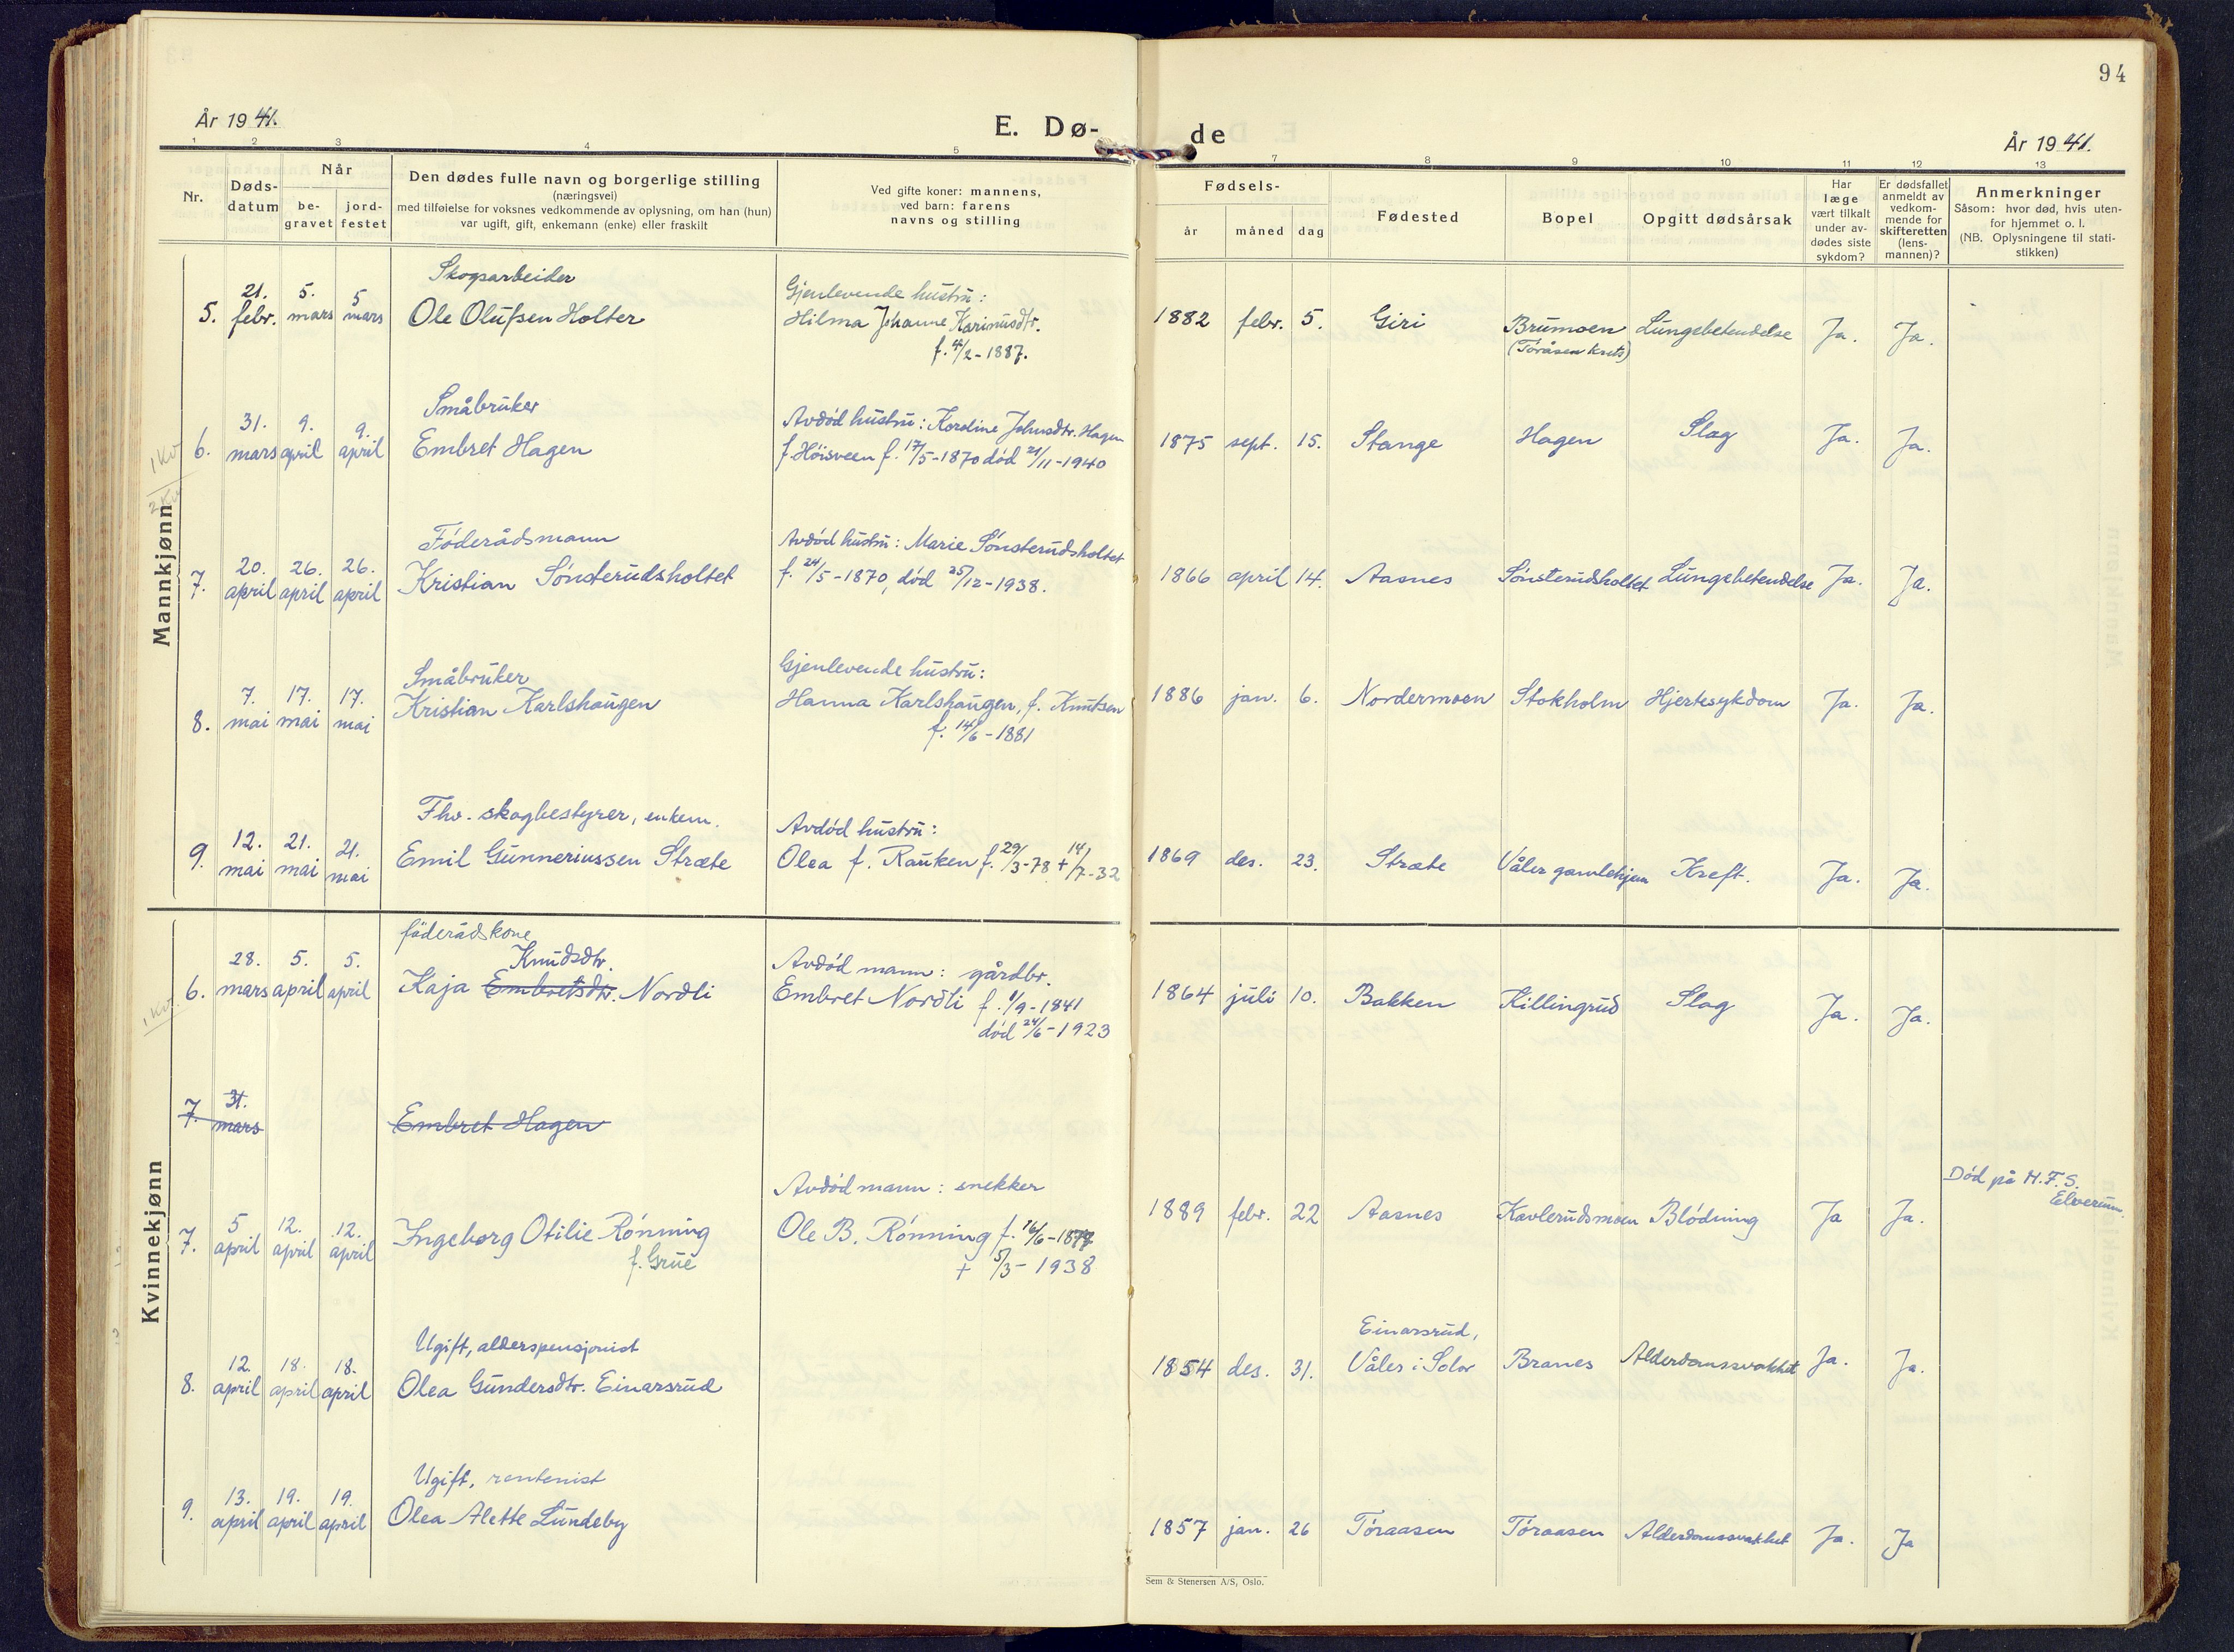 94
År 1941.
E. Dø-
de
År 1941.
1 2 3 4 5 7 8 9 10 11 12 13
Nr.
Døds-
datum
Når
be-
gravet
jord-
festet
Den dødes fulle navn og borgerlige stilling
(næringsvei)
med tilføielse for voksnes vedkommende av oplysning, om han (hun)
var ugift, gift, enkemann (enke) eller fraskilt
Ved gifte koner: mannens,
ved barn: farens
navns og stilling
Fødsels-
år
måned
dag
Fødested
Bopel
Opgitt dødsårsak
Har
læge
vært tilkalt
under av-
dødes siste
sykdom?
Er dødsfallet
anmeldt av
vedkom-
mende for
skifteretten
(lens-
mannen)?
Anmerkninger
Såsom: hvor død, hvis uten-
for hjemmet o. l.
(NB. Oplysningene til stati-
stikken)
Mannkjønn
Skogsarbeider
5. 21. febr. 5. mars 5 mars Ole Olufsen Holter
Gjenlevende hustru:
Hilma Johanne Karinusdtr.
f. 4/2-1887.
1882 febr. 5. Giri Brumoen Lungebetendelse Ja. Ja.
(Toråsen krets)
Småbruker
6. 31. mars 9. april 9. april Embret Hagen
Avdød hustru: Karoline Johnsdtr. Hagen
f. Høisveen f. 17/5-1870 død 21/11-1940
1875 sept. 15. Stange Hagen Slag Ja. Ja.
Føderådsmann
7. 20. april 26. april 26. april Kristian Sønsterudsholtet
Avdød hustru: Marie Sønsterudsholtet
f. 24/5-1870, død 25/12-1938.
1866 april 14. Aasnes Sønsterudsholtet Lungebetendelse Ja. Ja.
Småbruker
8. 7. mai 17. mai 17. mai Kristian Karlshaugen
Gjenlevende hustru:
Hanna Karlshaugen, f. Knutsen
f. 14/6-1881
1886 jan. 6. Nordermoen Stokholm Hjertesykdom Ja. Ja.
Fhv. skogbestyrer, enkem.
9. 12. mai 21. mai 21. mai Emil Gunneriussen Stræte
Avdød hustru:
Olea f. Rauken f. 29/3-78 + 14/7-32
1869 des. 23. Stræte Våler gamlehjem Kreft. Ja. Ja.
Kvinnekjønn
føderådskone
Knudsdtr.
6. 28. mars 5. april 5. april Kaja Embretsdtr. Nordli
Avdød mann: gårdbr.
Embret Nordli f. 1/9-1841
død 24/6-1923
1864 juli 10. Bakken Killingrud Slag Ja. Ja.
7. 31. mars Embret Hagen
7. 5 april 12. april 12. april Ingeborg Otilie Rønning
f. Grue
Avdød mann: snekker
Ole B. Rønning f. 16/6-1877
+ 5/3-1938
1889 febr. 22 Aasnes Kavlerudsmoen Blødning Ja Ja.
Død på H.F.S.
Elverum.
Ugift, alderspensjonist
8. 12. april 18. april 18. april Olea Gundersdtr. Einarsrud
Einarsrud,
1854 des. 31. Våler i Solør Branes Alderdomssvakhet Ja. Ja.
Ugift, rentenist
9. 13. april 19. april 19. april Olea Alette Lundeby
1857 jan. 26 Toraasen Toraasen Alderdomssvakhet Ja. Ja
Sem & Stenersen A/S, Oslo.